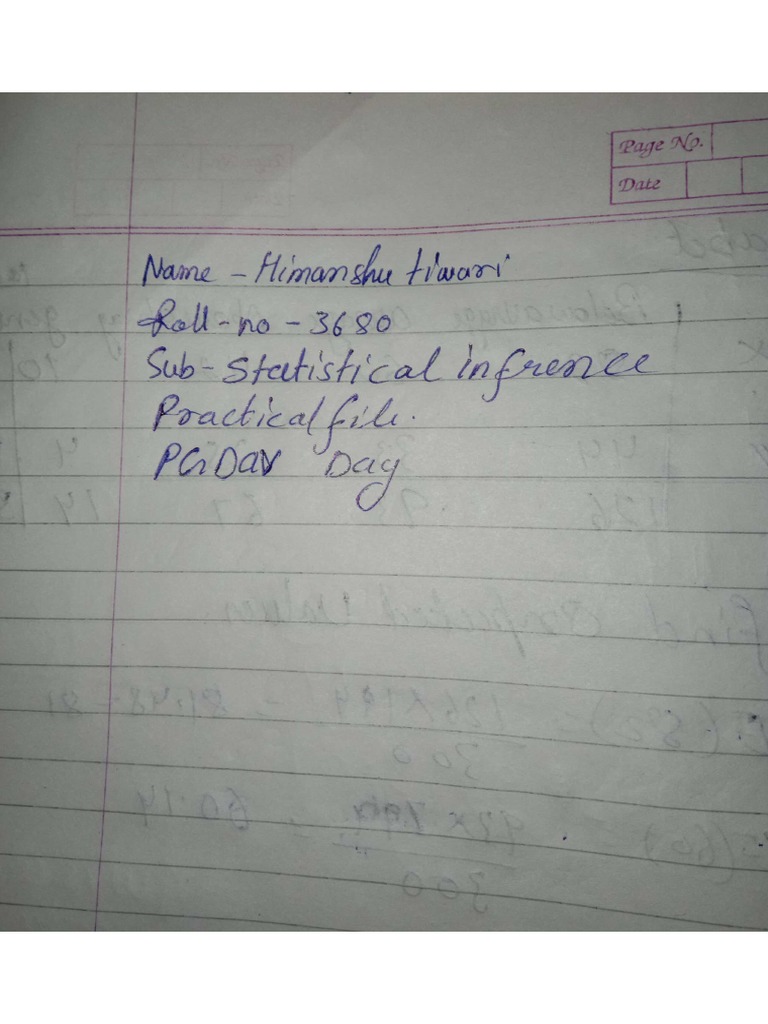 Page No.
Date
Name - Himanshu tiwari
Roll-no - 3680
Sub- Statistical infrence
Practical file.
PGDAV Day